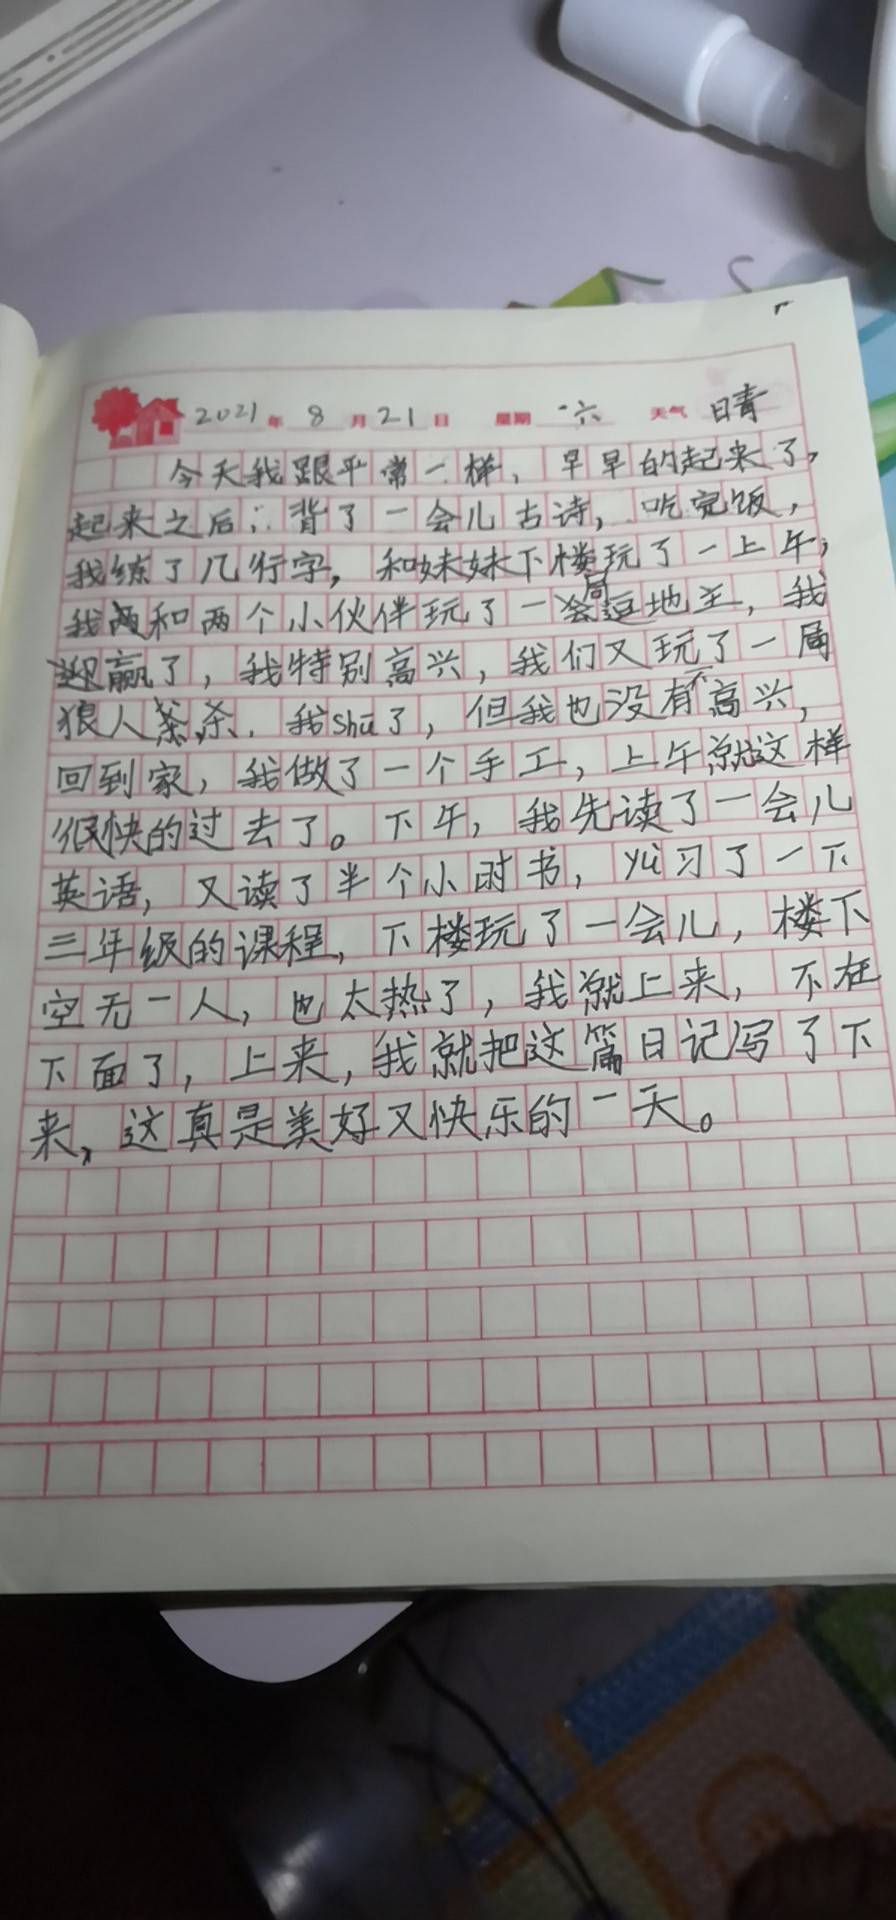 2021年 8月21日 星期 六 天气 晴
今天我跟平常一样，早早的起来了，
起来之后，背了一会儿古诗，吃完饭，
我练了几行字，和妹妹下楼玩了一上午，
我和两个小伙伴玩了一局逗地主，我
赢了，我特别高兴，我们又玩了一局
狼人杀，我shū了，但我也没有不高兴，
回到家，我做了一个手工，上午就这样
很快的过去了。下午，我先读了一会儿
英语，又读了半个小时书，yù习了一下
三年级的课程，下楼玩了一会儿，楼下
空无一人，也太热了，我就上来，不在
下面了，上来，我就把这篇日记写了下
来，这真是美好又快乐的一天。